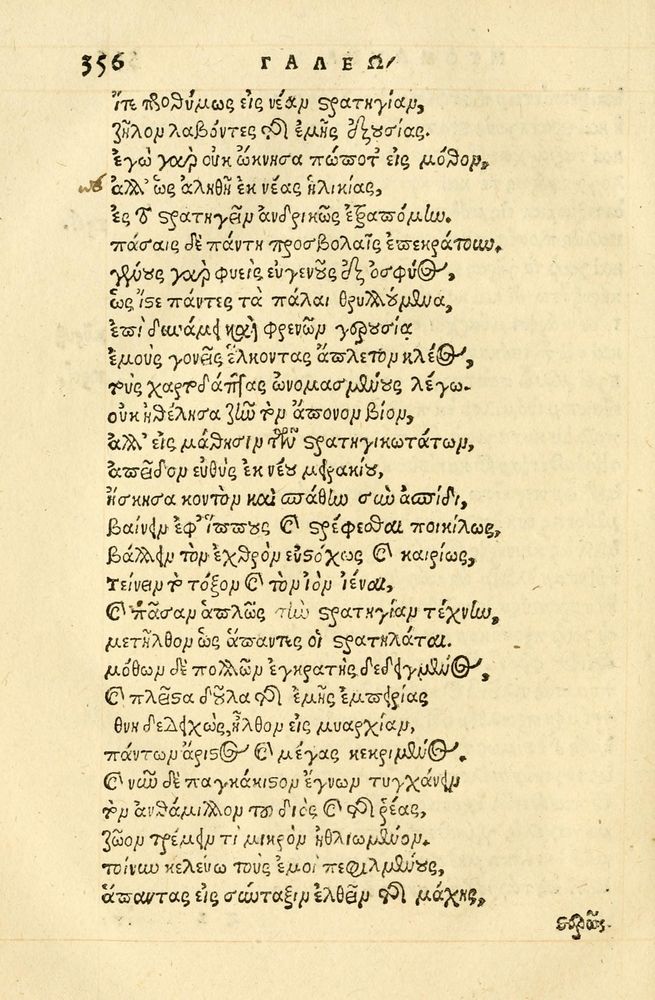 356 ΓΑΛΕΩ
ἴτε προθύμως εἰς νέαν στρατηγίαν,
ζῆλον λαβόντες τῆς ἐμῆς ἐξουσίας.
ἐγὼ γὰρ οὐκ ὤκνησα πώποτ' εἰς μόθον,
ἀλλ' ὡς ἀληθῆ ἐκ νέας ἡλικίας,
ἐς τὸ στρατηγεῖν ἀνδρικῶς ἐξαπτόμην.
πάσαις δὲ πάντη προσβολαῖς ἐπεκράτουν.
γένους γὰρ φυεὶς εὐγενοῦς ἐξ ὀσφύος,
ὡς ἴστε πάντες τὰ πάλαι θρυλλούμενα,
ἐπὶ δυνάμει καὶ φρενῶν γερουσίᾳ
ἐμοὺς γονεῖς ἕλκοντας ἄπλετον κλέος,
τοὺς χαρτοδάπτας ὠνομασμένους λέγω.
οὐκ ἠθέλησα ζῆν τὸν ἄπονον βίον,
ἀλλ' εἰς μάθησιν τῶν στρατηγικωτάτων,
ἀπεῖδον εὐθὺς ἐκ νέου μειρακίου,
ἤσκησα κοντὸν καὶ σπάθην σὺν ἀσπίδι,
βαίνειν ἐφ' ἵππους καὶ στρέφεσθαι ποικίλως,
βάλλειν τὸν ἐχθρὸν εὐστόχως καὶ καιρίως,
τείνειν τὸ τόξον καὶ τὸν ἰὸν ἱέναι,
καὶ πᾶσαν ἁπλῶς τὴν στρατηγίαν τέχνην,
μετῆλθον ὡς ἅπαντες οἱ στρατηλάται.
μόθων δὲ πολλῶν ἐγκρατὴς δεδειγμένος,
καὶ πλεῖστα δοῦλα τῆς ἐμῆς ἐμπειρίας
θνη δελειχὼς, ἦλθον εἰς μυαρχίαν,
πάντων ἄριστος καὶ μέγας κεκριμένος.
καὶ νῦν δὲ παγκάκιστον ἔγνων τυγχάνειν
τὸν ἀνθάμιλλον τοῦ διὸς καὶ τῆς ῥέας,
ζῶον τρέμειν τι μικρὸν ἠθλιωμένον.
τοίνυν κελεύω τοὺς ἐμοὶ πεφιλμένους,
ἅπαντας εἰς σύνταξιν ἐλθεῖν τῆς μάχης,